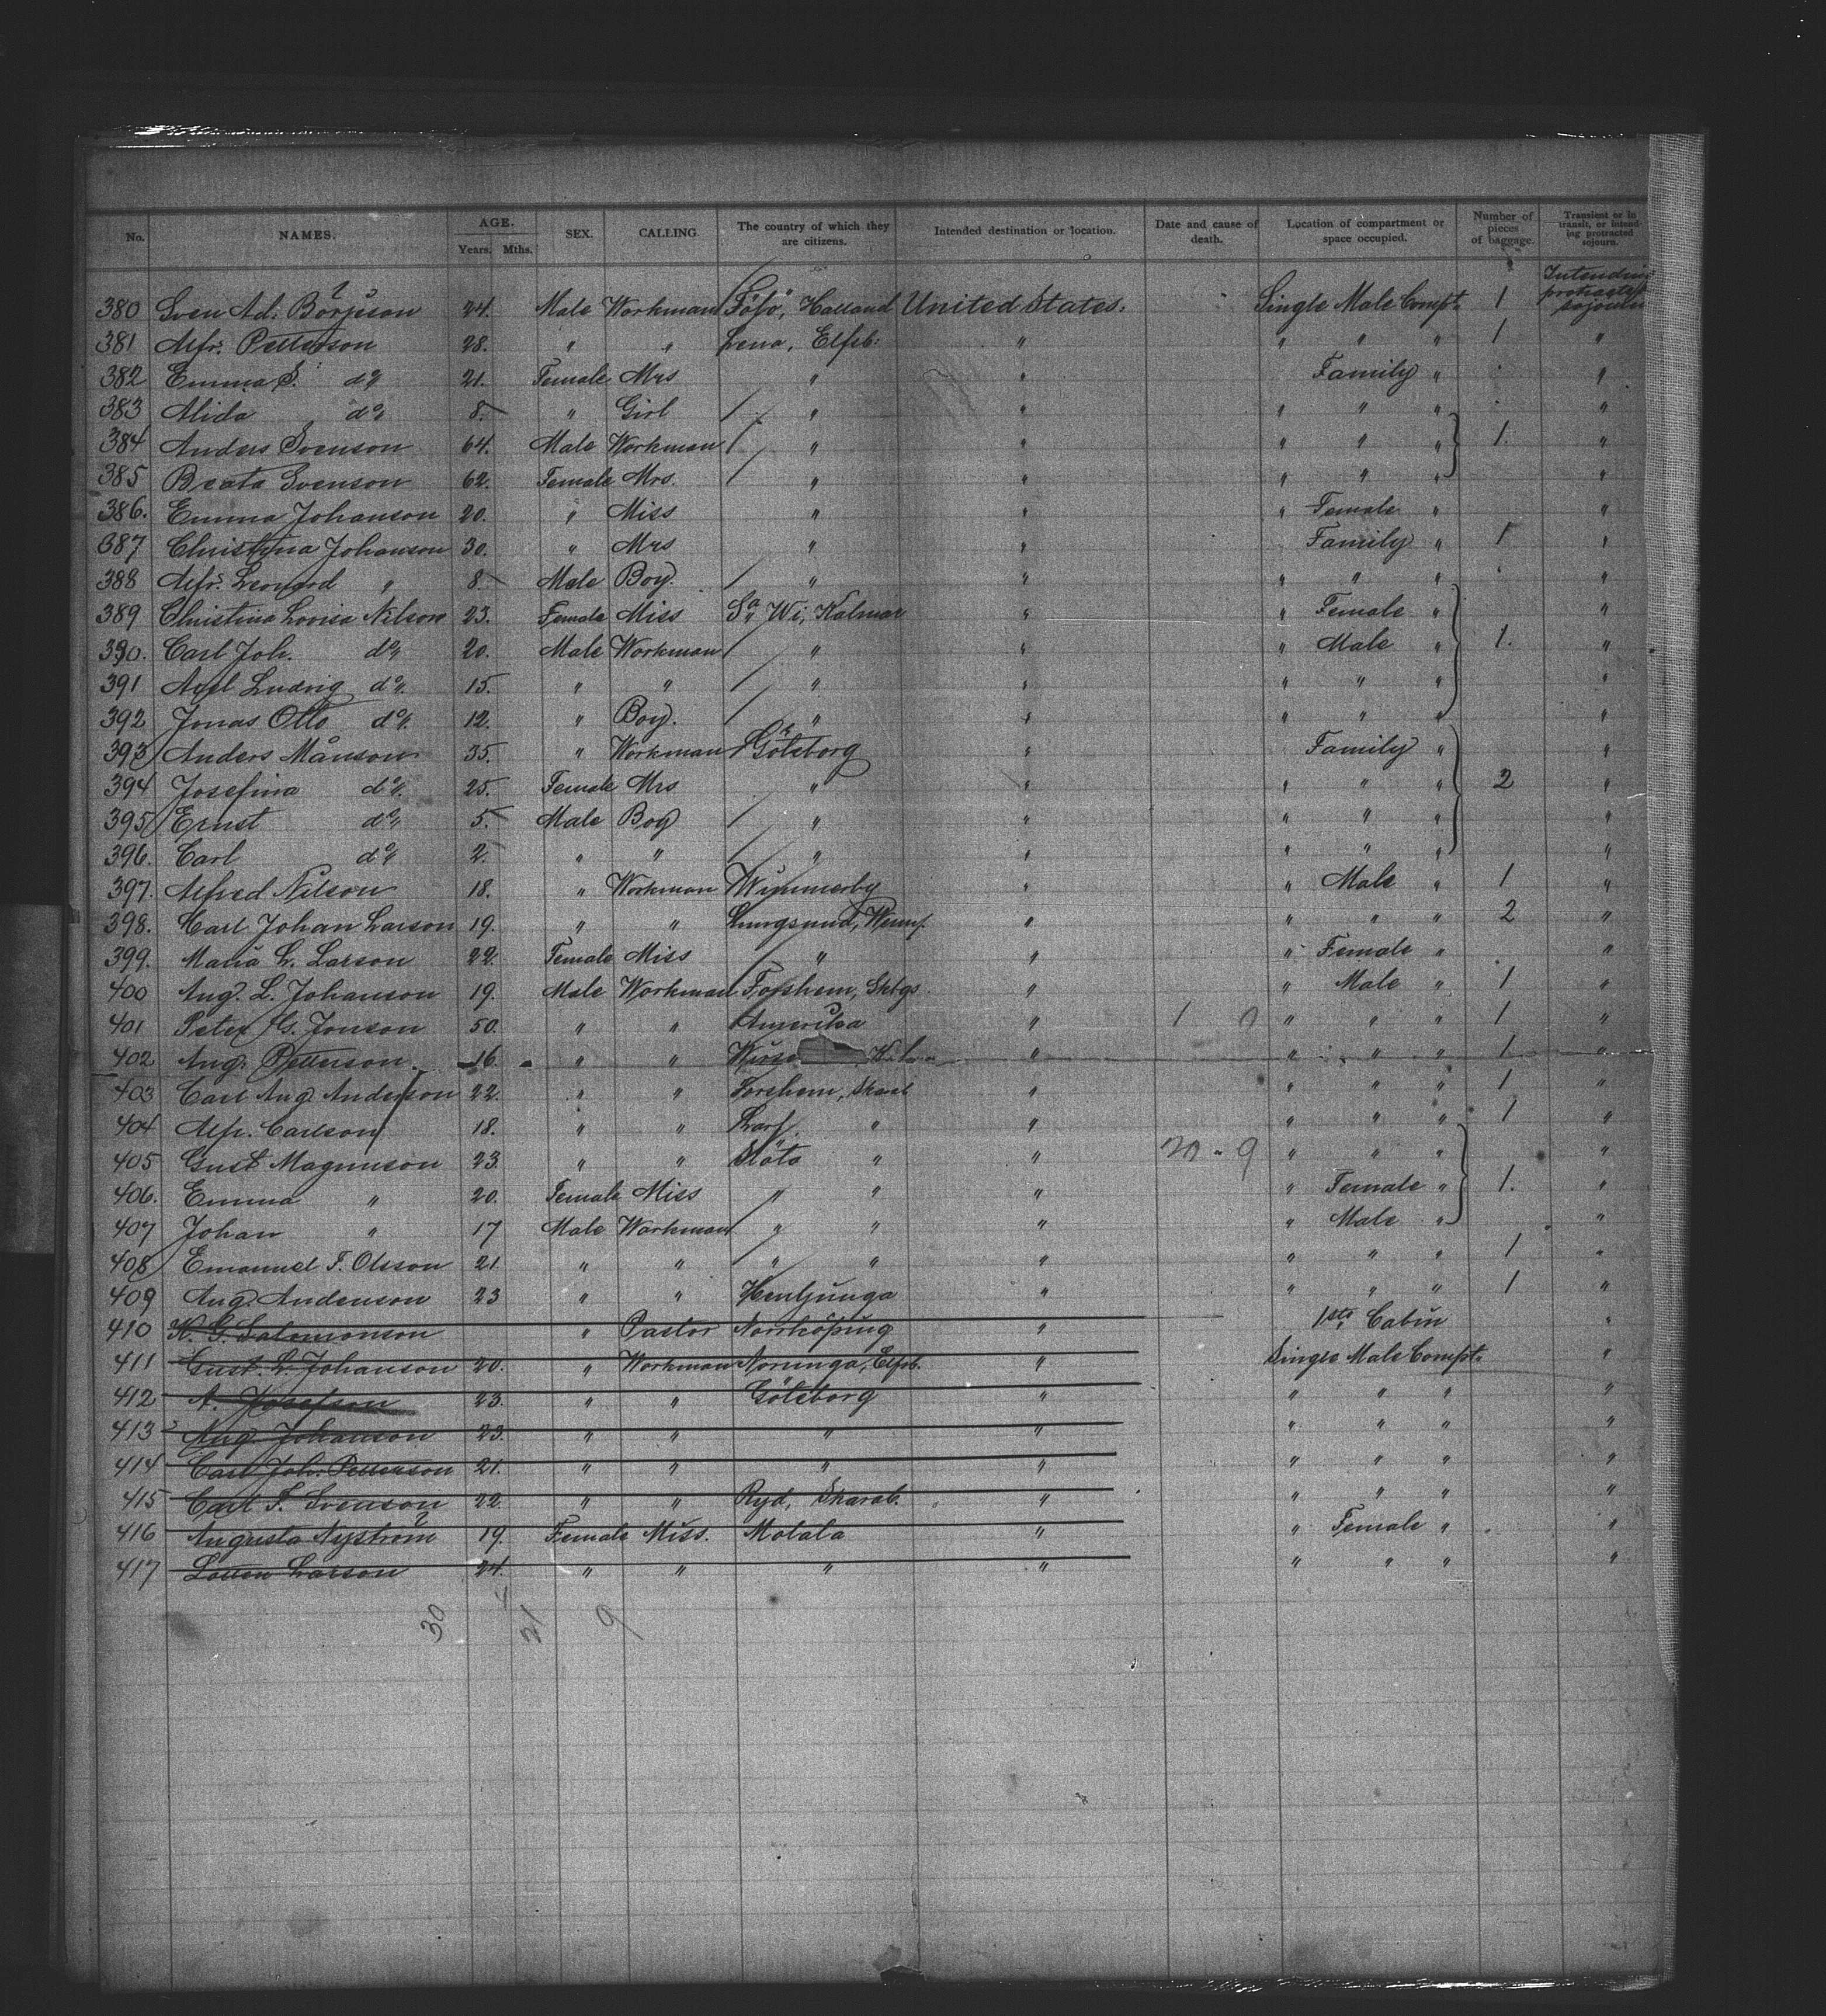 No. NAMES. AGE. Years. Mths. SEX. CALLING. The country of which they are citizens. Intended destination or location. Date and cause of death. Location of compartment or space occupied. Number of pieces of baggage. Transient or in transit, or intending protracted sojourn.
380 Sven Ad. Börjeson 24. Male Workman Halland United States. Single Male Compt. 1 Intending protracted sojourn
381 Alfr. Petterson 28. " " Lena, Elfsb. " " " " 1 "
382 Emma S. do 21. Female Mrs " " Family " "
383 Alida do 8. " Girl " " " " " "
384 Anders Svenson 64. Male Workman " " " " " 1. "
385 Beata Svenson 62. Female Mrs. " " " " " "
386. Emma Johanson 20. " Miss " " " Female " "
387 Christina Johanson 30. " Mrs " " Family " 1 "
388 Alfr. Leonard " 8. Male Boy. " " " " " "
389 Christina Lovisa Nilson 23. Female Miss Sa Wi, Kalmar " " Female " "
390. Carl Joh. do 20. Male Workman " " " Male " 1. "
391 Axel Ludvig do 15. " " " " " " " "
392 Jonas Otto do 12. " Boy. " " " " " "
393 Anders Månson 35. " Workman Göteborg " Family " "
394 Josefina do 25. Female Mrs " " " " " 2 "
395 Ernst do 5. Male Boy " " " " " "
396. Carl do 2. " " " " " " " "
397. Alfred Nilson 18. " Workman Wimmerby " " Male " 1 "
398. Carl Johan Larson 19. " " " " " " 2 "
399. Maria L. Larson 22. Female Miss " " " Female " "
400 Aug. L. Johanson 19. Male Workman Forshem, Skbgs. " " Male " 1 "
401 Peter G. Jonson 50. " " Amerika " " " " 1 "
402 Aug. Petterson 16. " " " " " " 1 "
403 Carl Aug. Anderson 22. " " Forshem, Skarab " " " " 1 "
404 Alfr. Carlson 18. " " Larf " " " " " 1 "
405 Gust Magnuson 23. " " Slöta " " 20 - 9 " " " "
406. Emma " 20. Female Miss " " " " Female " 1. "
407 Johan " 17 Male Workman " " " " Male " "
408 Emanuel F. Olsson 21 " " " " " " " " 1 "
409 Aug. Anderson 23 " " Henljunga " " " " 1 "
410 K. G. Salomonson " Pastor Norrköping " 1sta Cabin "
411 Gust. L. Johanson 20. " Workman Norunga, Elfsb. " Single Male Compt. "
412 A. Josefson 23. " " Göteborg " " " " "
413 Aug. Johanson 23. " " " " " " " "
414 Carl Joh. Petterson 21. " " " " " " " "
415 Carl F. Svenson 22. " " Ryd, Skarab. " " " " "
416 Augusta Nyström 19. Female Miss. Motala " " Female " "
417 Larson 24. " " " " " " " "
30 21 9